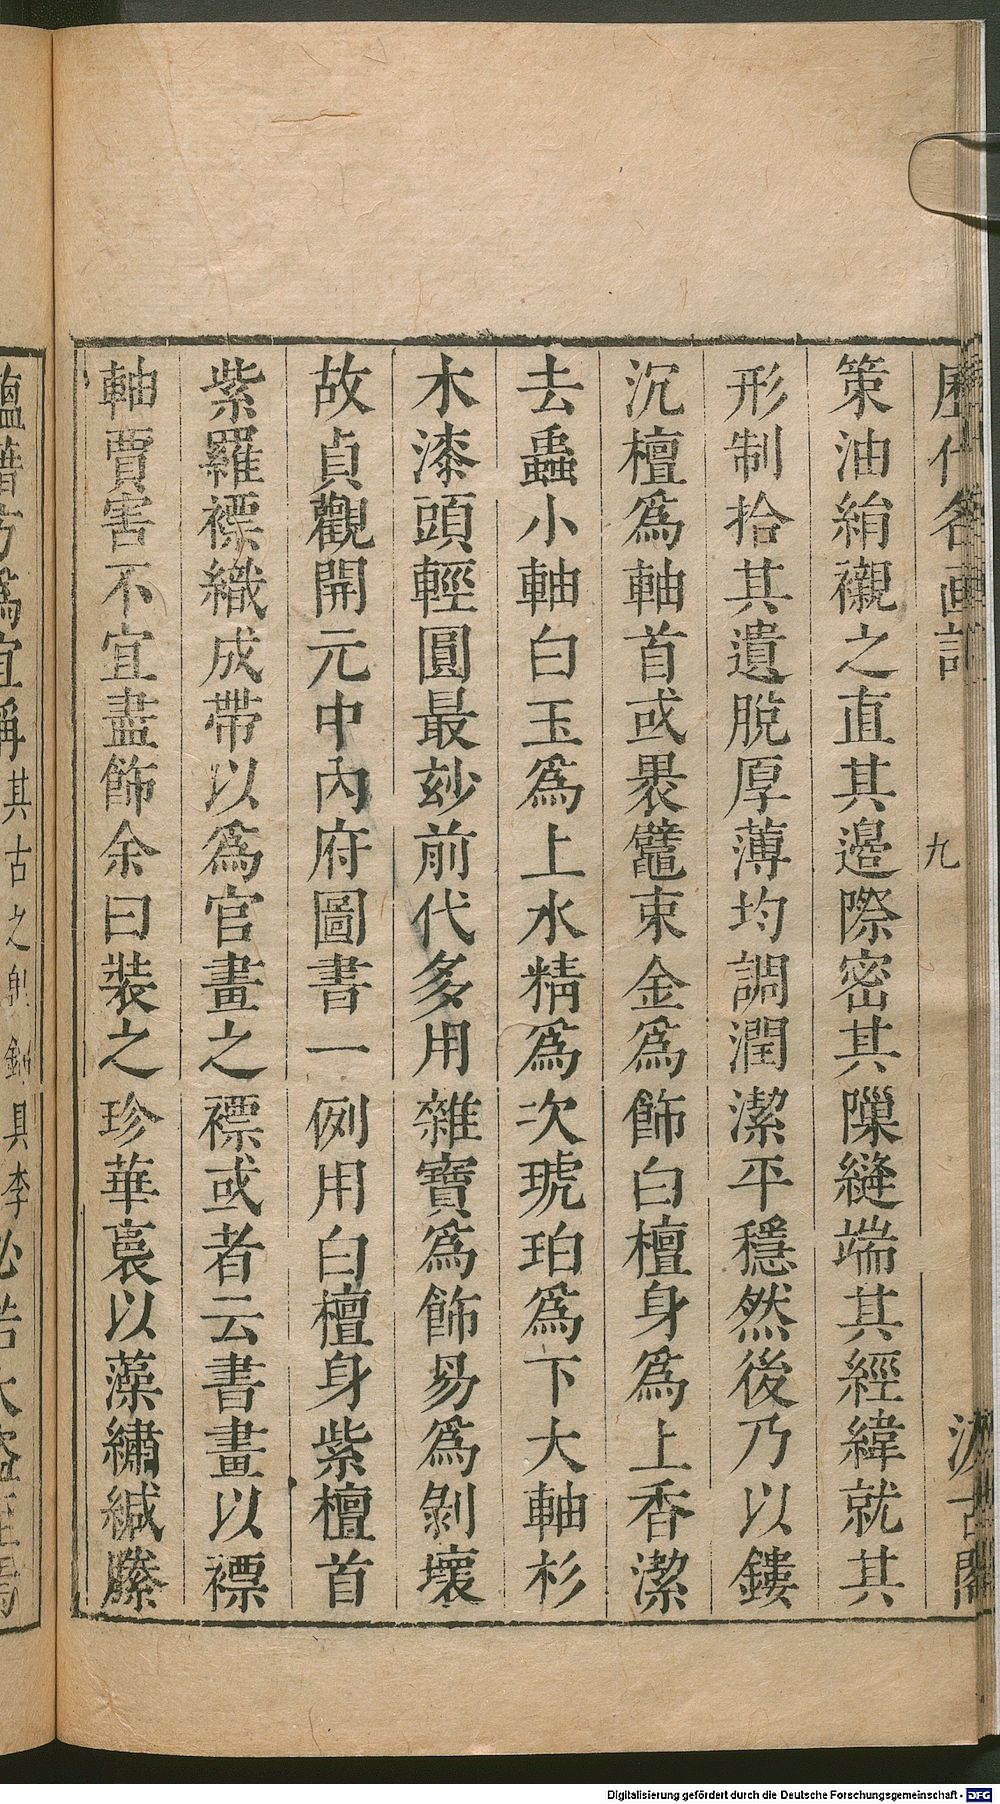 歷代名画記
九
汲古閣
策油絹襯之直其邉際密其隟縫端其經緯就其
形制拾其遺脫厚薄均調潤潔平穩然後乃以鏤
沉檀爲軸首或褁鼊束金爲飾白檀身爲上香潔
去蟲小軸白玉爲上水精爲次琥珀爲下大軸杉
木漆頭輕圓最玅前代多用雜寶爲飾易爲剝壞
故貞觀開元中內府圖書一例用白檀身紫檀首
紫羅褾織成帶以爲官畫之褾或者云書畫以褾
軸賈害不宜盡飾余曰裝之珍華裛以藻繡緘縢
蘊藉方爲宜稱其古之
具李
Digitalisierung gefördert durch die Deutsche Forschungsgemeinschaft - DFG